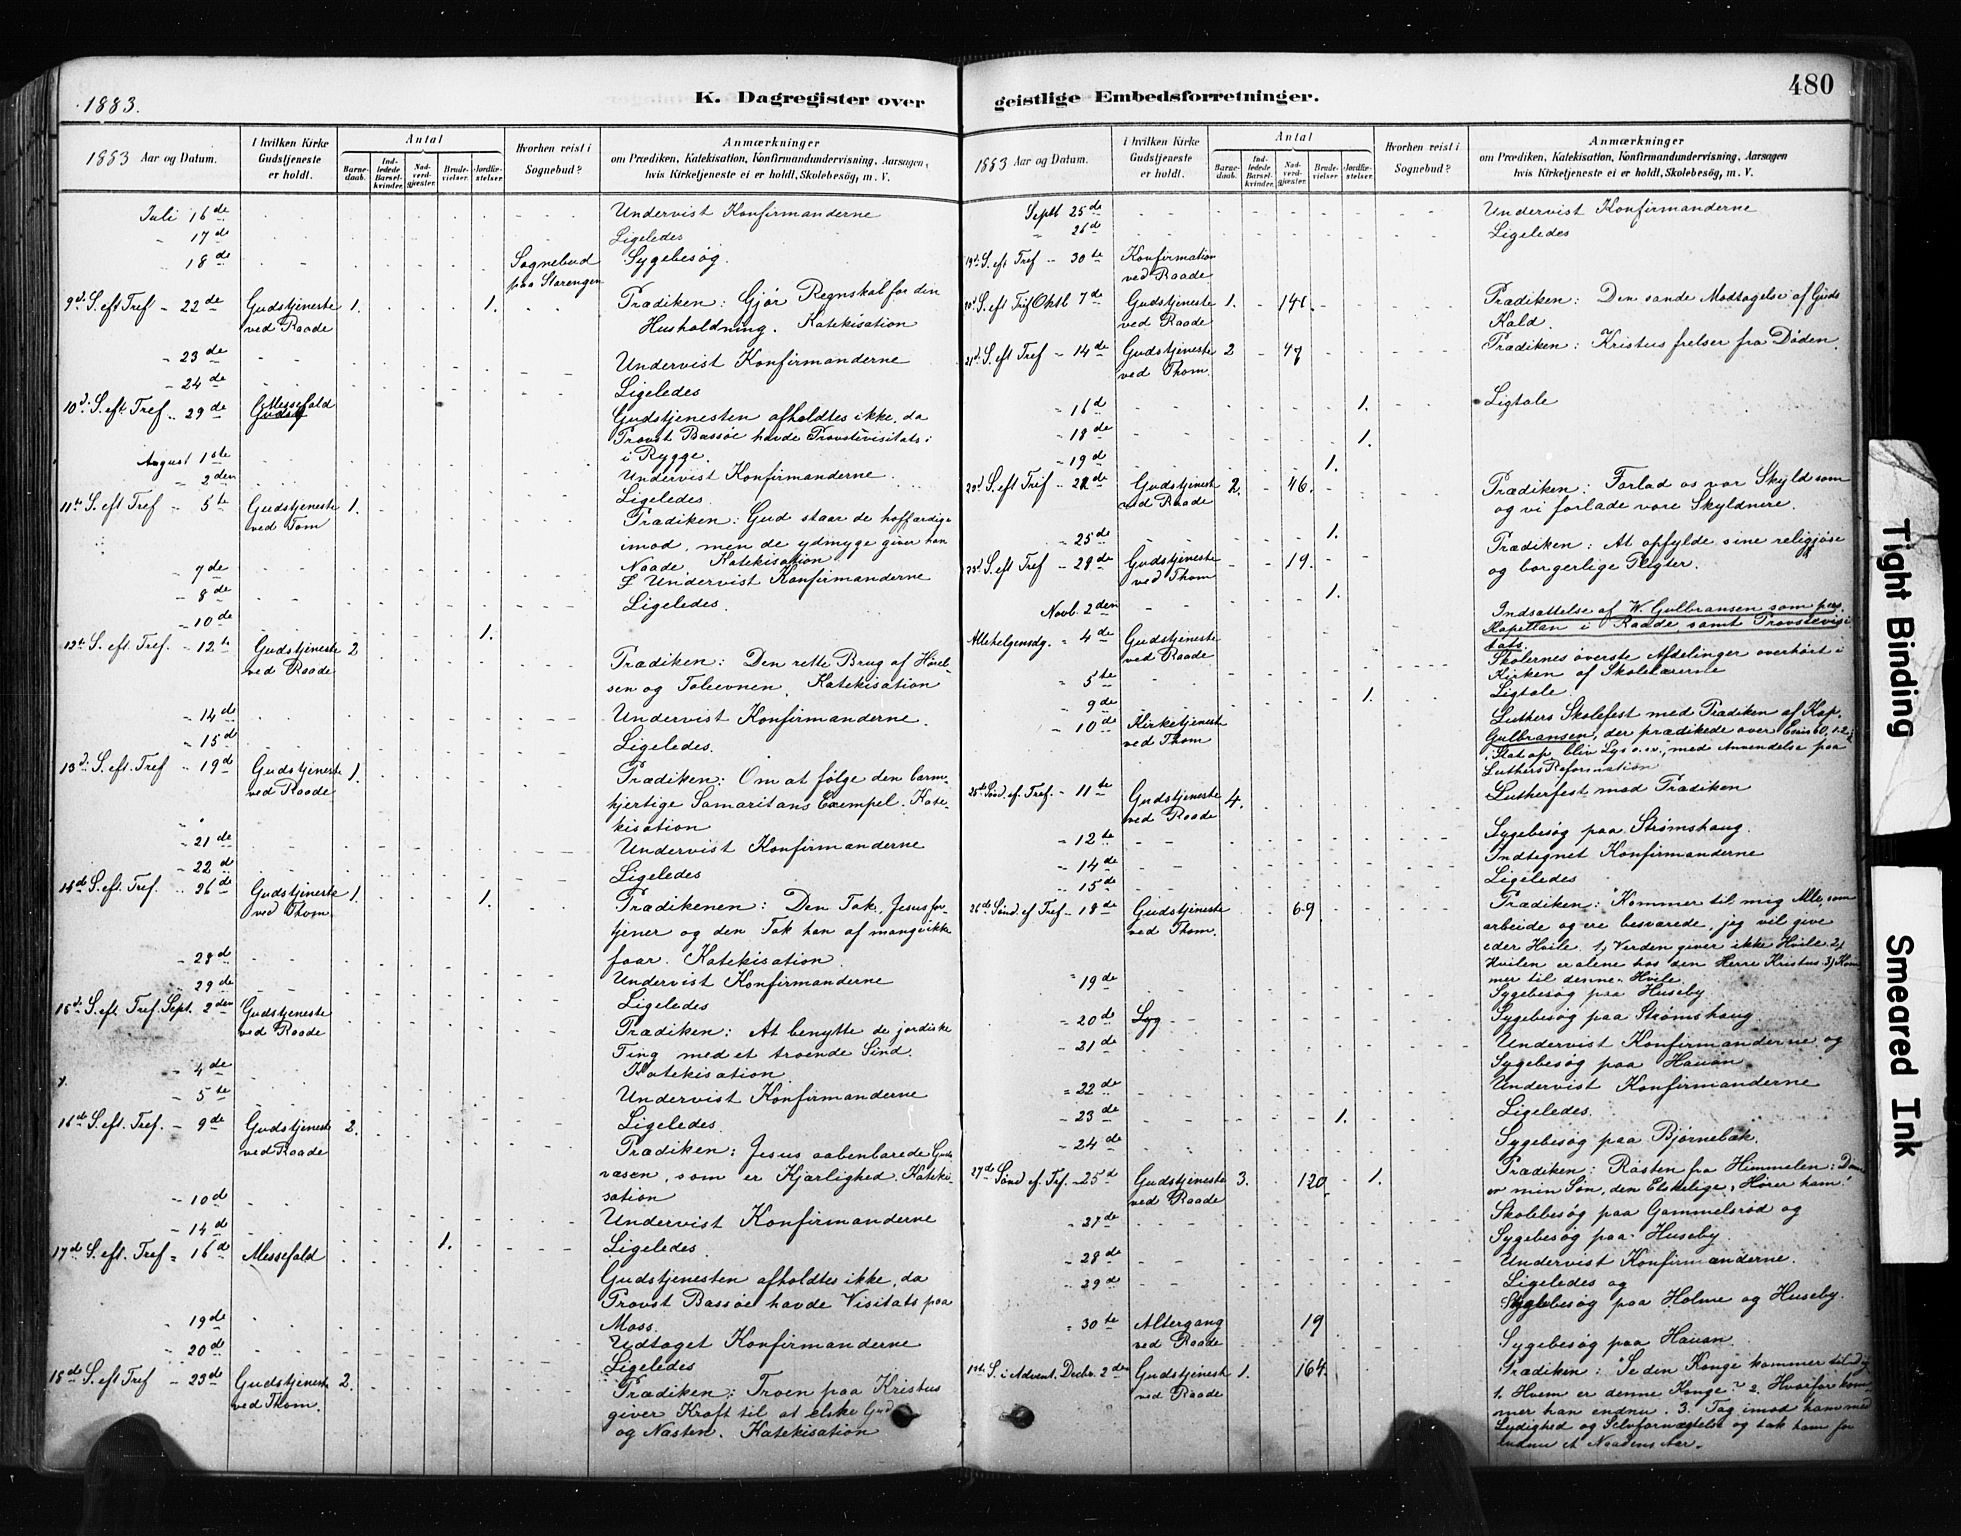 1883.
K. Dagregister over
1883 Aar og Datum.
I hvilken Kirke Gudstjeneste er holdt.
Antal
Barnedaab.
Indledede Barselkvinder.
Nadverdgjæster.
Brudevielser.
Jordfæstelser.
Hvorhen reist i Sognebud?
Anmærkninger
om Prædiken, Katekisation, Konfirmandundervisning, Aarsagen, hvis Kirketjeneste ei er holdt, Skolebesøg, m. V.
Juli 16de Undervist Konfirmanderne
" 17de Ligeledes
" 18de Sognebud paa Starengen Sygebesøg.
9d S. eft Tref - 22de Gudstjeneste ved Raade 1. 1. Prædiken: Gjør Regnskab for din
Husholdning. Katekisation
- 23de Undervist Konfirmanderne
- 24de Ligeledes
10d S. eft Tref - 29de Messefald Gudstj Gudstjenesten afholdtes ikke, da
Provst Bassøe havde Provstevisitats i
i Rygge.
August 1ste Undervist Konfirmanderne.
- 2den Ligeledes.
11te S. eft Tref - 5te Gudstjeneste ved Tom 1. Prædiken: Gud staar de hoffærdige
imod, men de ydmyge giver han
Naade. Katekisation
- 7de Undervist Konfirmanderne
- 8de Ligeledes.
- 10de 1.
12te S. eft. Tref. - 12te Gudstjeneste ved Raade 2 Prædiken: Den rette Brug af Hørel-
sen og Taleevnen. Katekisation
- 14d Undervist Konfirmanderne.
- 15d Ligeledes.
13d S. eft. Tref - 19d Gudstjeneste ved Raade 1. Prædiken: Om at følge den barm-
hjertige Samaritans Exempel. Kate-
kisation
- 21de Undervist Konfirmanderne
- 22de Ligeledes
14de S. eft. Tref. - 26de Gudstjeneste ved Thom. 1. 1. Prædikenen: Den Tak, Jesus for-
tjener og den Tak han af mange ikke
faar. Katekisation.
- 28d Undervist Konfirmanderne
- 29de Ligeledes
15d S. eft Tref. Sept. 2den Gudstjeneste ved Raade Prædiken: At benytte de jordiske
Ting med et troende Sind.
Katekisation.
- 4de Undervist Konfirmanderne
- 5te Ligeledes.
16de S. eft. Tref. - 9de Gudstjeneste ved Raade 2. Prædiken: Jesus aabenbarede Guds
væsen, som er Kjærlighed. Kateki-
sation
- 10d Undervist Konfirmanderne
- 14d Ligeledes. 1.
17de S. eft. Tref - 16d Messefald Gudstjenesten afholdtes ikke, da
Provst Bassøe havde Visitats paa
Moss.
- 19de Udtaget Konfirmanderne
- 20d Ligeledes
18de S. eft Tref - 23de Gudstjeneste ved Thom. 2. Prædiken: Troen paa Kristus
giver Kraft til at elske Gud
og Næsten. Katekisation
480
geistlige Embedsforretninger.
1883 Aar og Datum.
I hvilken Kirke Gudstjeneste er holdt.
Antal
Barnedaab.
Indledede Barselkvinder.
Nadverdgjæster.
Brudevielser.
Jordfæstelser.
Hvorhen reist i Sognebud?
Anmærkninger
om Prædiken, Katekisation, Konfirmandundervisning, Aarsagen hvis Kirketjeneste ei er holdt, Skolebesøg, m. V.
Septb 25de Undervist Konfirmanderne
" 26de Ligeledes
19de S. eft Tref - 30te Konfirmation ved Raade
20d S. eft Tref Oktb 7de Gudstjeneste ved Raade 1. Prædiken: Den sande Modtagelse af Guds
Kald.
21d S. eft Tref - 14de Gudstjeneste ved Thom. 2 Prædiken: Kristus frelser fra Døden.
- 16d 1. Ligtale
- 18de 1.
- 19de 1.
S. eft Tref - 21de Gudstjeneste ved Raade 2. 46. Prædiken: Forlad os vor Skyld som
og vi forlade vore Skyldnere.
- 25de 1.
23d S. eft Tref - 28de Gudstjeneste ved Thom 19. Prædiken: At opfylde sine religiøse
og borgerlige Pligter.
Novb. 2den 1.
Allehelgensdg. - 4de Gudstjeneste ved Raade Indsættelse af W. Gulbransen som pers.
Kapellan i Raade, samt Provstevisi
tats.
- 5te Skolernes øverste Afdelinger overhørt i
Kirken af Skolelærerne
- 9de 1. Ligtale.
- 10de Kirketjeneste ved Thom Luthers Skolefest med Prædiken af Kap.
Gulbransen, der prædikede over Esaias 60, 1-2:
"Staa op, bliv Lys o.s.v., med Anvendelse paa
Luthers Reformation
25de Sønd. ef. Tref. - 11te Gudstjeneste ved Raade 4. Lutherfest med Prædiken
- 12te Sygebesøg paa Strømshaug.
- 14de Indtegnet Konfirmanderne
- 15de Ligeledes.
26de Sønd. ef Tref - 18de Gudstjeneste ved Thom. 69 Prædiken: "Kommer til mig Alle, som
arbeide og ere besværede, jeg vil give
eder Hvile. 1, Verden giver ikke Hvile. 2,
Hvilen er alene hos den Herre Kristus. 3) Kom
mer til denne Hvile.
- 19de Sygebesøg paa Huseby.
- 20de Syg Sygebesøg paa Strømshaug.
- 21de Undervist Konfirmanderne og
Sygebesøg paa Hauan
- 22de Undervist Konfirmanderne
- 23de 1. Ligeledes.
- 24de Sygebesøg paa Bjørnebæk.
27de Sønd ef. Tref. - 25d Gudstjeneste ved Raade 3. 120 1. Prædiken: Røsten fra Himmelen: Denne
er min Søn, den Elskelige, Hører ham!
- 27de Skolebesøg paa Gammelsrød og
Sygebesøg paa Huseby.
- 28de Undervist Konfirmanderne.
- 29de Ligeledes og
Sygebesøg paa Holme og Huseby.
- 30te Altergang ved Raade 19 Sygebesøg paa Hauan.
1ste S. i Advent Decbr. 2den Gudstjeneste ved Raade 1. 164. Prædiken: "Se din Konge kommer til dig
1. Hvem er denne Konge? 2. Hvorfor kom-
mer han endnu. 3. Tag imod ham med
Lydighed og Selvfornægtelse og tak ham for
endnu et Naadens Aar.
Tight Binding
Smeared Ink